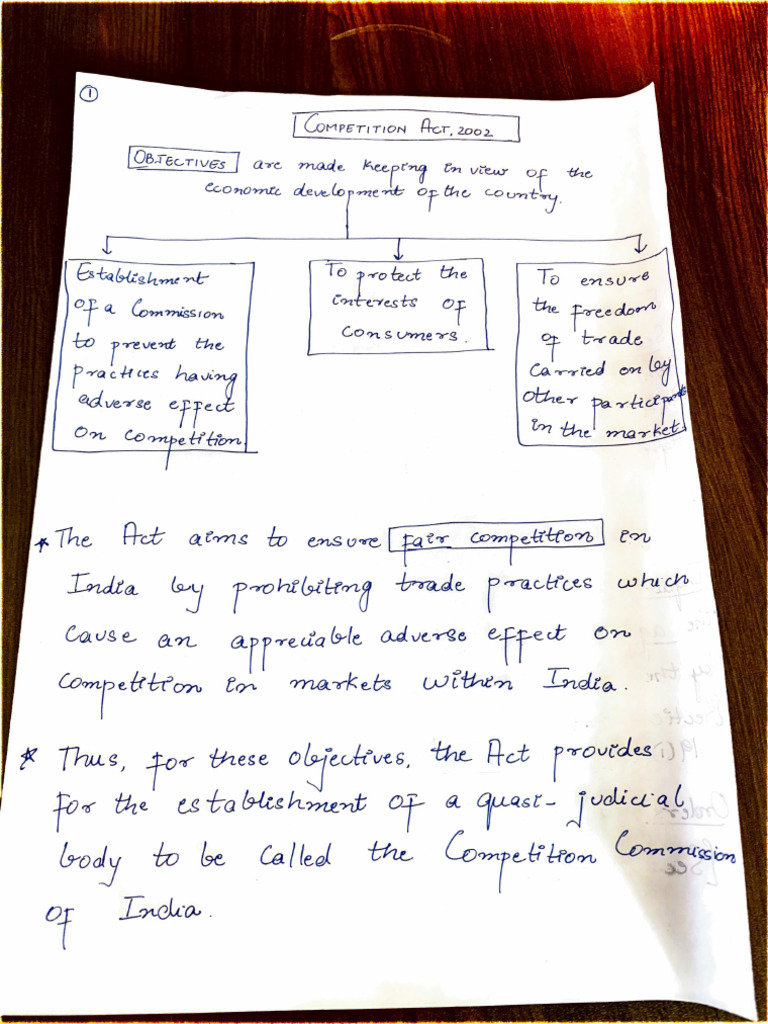 ①
COMPETITION ACT, 2002
OBJECTIVES are made keeping in view of the
economic development of the country.
Establishment
of a Commission
to prevent the
practices having
adverse effect
on competition
To protect the
interests of
consumers.
To ensure
the freedom
of trade
carried on by
other participants
in the market
* The Act aims to ensure fair competition in
India by prohibiting trade practices which
cause an appreciable adverse effect on
competition in markets within India.
* Thus, for these objectives, the Act provides
for the establishment of a quasi-judicial
body to be called the Competition Commission
of India.